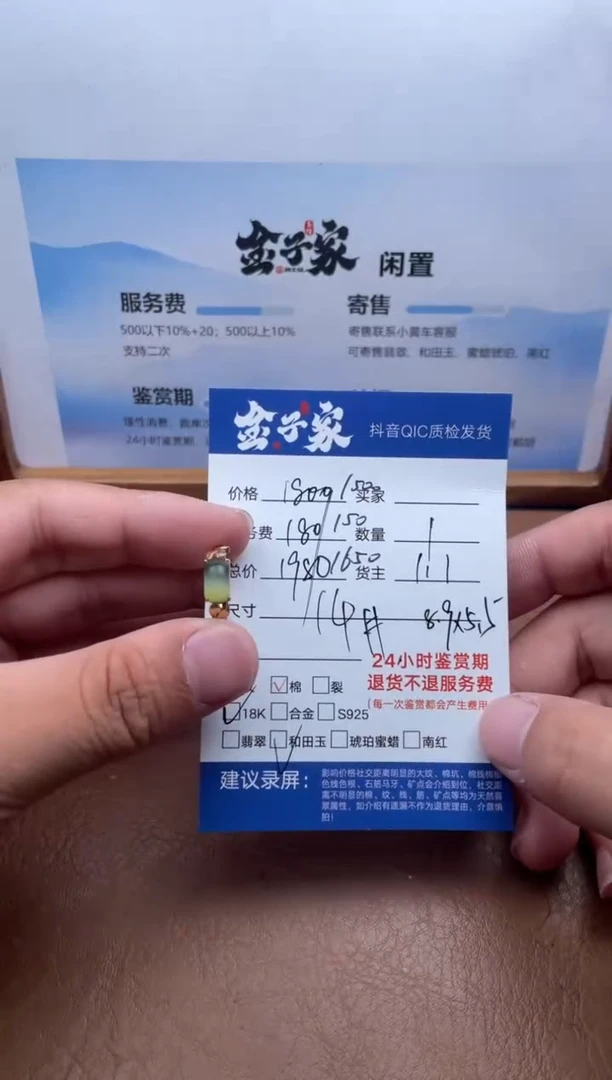 金子家 闲置
服务费
500以下10%+20；500以上10%
支持二次
寄售
寄售联系小黄车客服
可寄售翡翠、和田玉、蜜蜡琥珀、南红
鉴赏期
24小时鉴赏期
金子家 抖音QIC质检发货
价格 1800 1500 买家
务费 180 150 数量 1
总价 1980 1650 货主 111
尺寸 14# 8.9×5.5
24小时鉴赏期
退货不退服务费
棉 裂
(每一次鉴赏都会产生费用
18K 合金 S925
翡翠 和田玉 琥珀蜜蜡 南红
建议录屏：
影响价格社交距离明显的大纹、棉坑、棉线棉
色线色根、石筋马牙、矿点会介绍到位，社交距
离不明显的棉、纹、线、筋、矿点等均为天然翡
翠属性，如介绍有遗漏不作为退货理由，介意慎
拍！